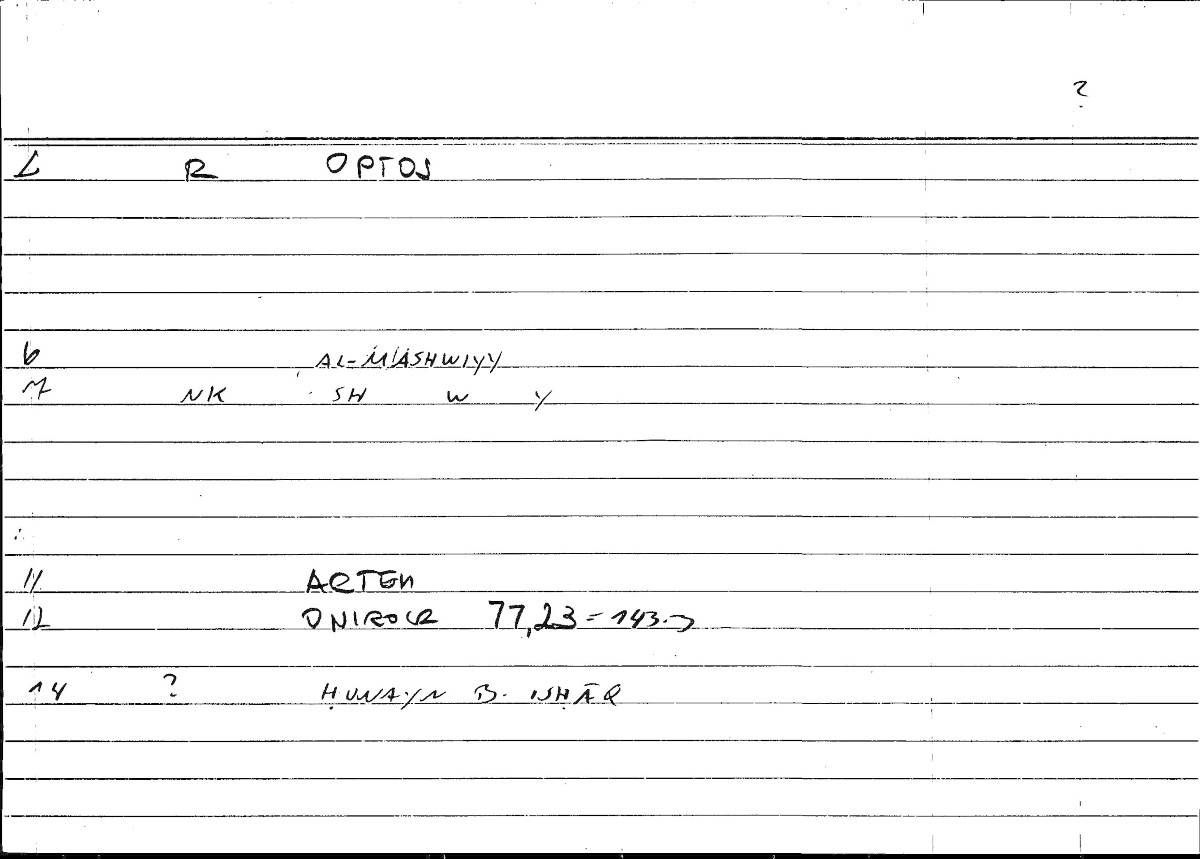 ?
1 R OPTOS
6 AL-MASHWIYY
7 NK SH W Y
11 ARTEM
12 ONIROCR 77,23 = 143.
14 ? ḤUNAYN B. ISḤĀQ